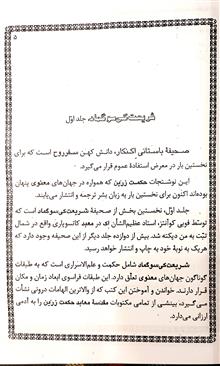 ۵
شریعت‌کی‌سوگماد، جلد اول
صحیفهٔ باستانی اکنکار، دانش کهن سفرروح است که برای
نخستین بار در معرض استفادهٔ عموم قرار می‌گیرد.
این نوشتجات حکمت زرین که همواره در جهان‌های معنوی پنهان
بوده‌اند اکنون برای نخستین بار به زبان بشر ترجمه و انتشار می‌یابند.
جلد اول، نخستین بخش از صحیفهٔ شریعت‌کی‌سوگماد است که
توسط فوبی کوانتز، استاد عظیم‌الشأن اِک در معبد کاتسوپاری واقع در شمال
تبّت به من دیکته شد. بیش از دوازده جلد دیگر از این صحیفه وجود دارد که
هریک به نوبهٔ خود به چاپ و انتشار خواهد رسید.
شریعت‌کی‌سوگماد شامل حکمت و علم‌الاسراری است که به طبقات
گوناگون جهان‌های معنوی تعلّق دارد. این طبقات فراسوی ابعاد زمان و مکان
قرار دارند. خواندن و آموختن این کتب که از والاترین الهامات درونی نشأت
می‌گیرد، بینشی از تمامی مکتوبات مقدسهٔ معابد حکمت زرین را به آدمی
ارزانی می‌دارد.